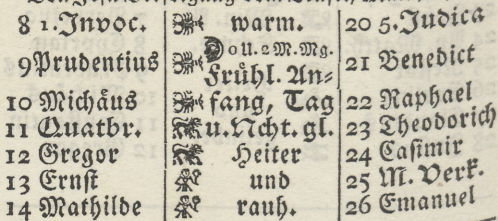 8 1. Invoc. warm. 20 5. Judica
9 Prudentius 0 U. 2 M. Mg. Frühl. An- 21 Benedict
10 Michäus fang, Tag 22 Raphael
11 Quatbr. u. Ncht. gl. 23 Theodorich
12 Gregor Heiter 24 Casimir
13 Ernst und 25 M. Verk.
14 Mathilde rauh. 26 Emanuel